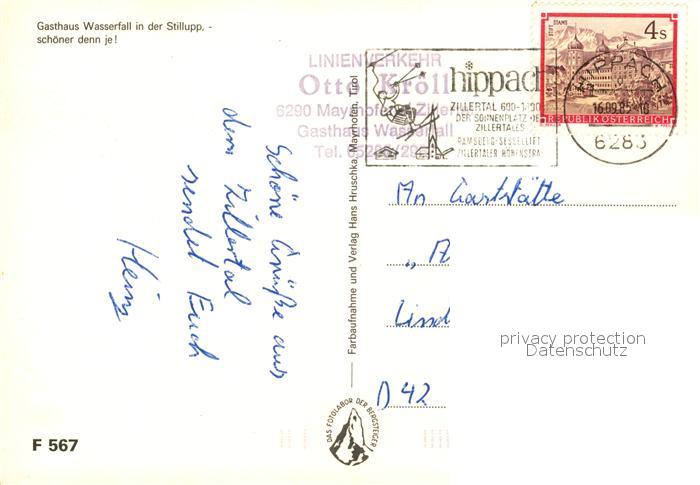 Gasthaus Wasserfall in der Stillupp, -
schöner denn je!
LINIENVERKEHR
Otto Kröll
6290 Mayrhofen Ziller
Gasthaus Wasserfall
Tel.
hippach
ZILLERTAL 600-
DER SONNENPLATZ
ZILLERTALES
RAMSBERG-SESSELLIFT
ZILLERTALER HÖHENSTRA
STIFT STAMS
4 S
REPUBLIK ÖSTERREICH
HIPPACH
16.09.85-18
6283
Schöne Grüße aus
dem Zillertal
sendet Euch
Heinz
Farbaufnahme und Verlag Hans Hruschka, Mayrhofen, Tirol
An Gaststätte
„A
Lind
D 42
privacy protection
Datenschutz
DAS FOTOLABOR DER BERGSTEIGER
F 567